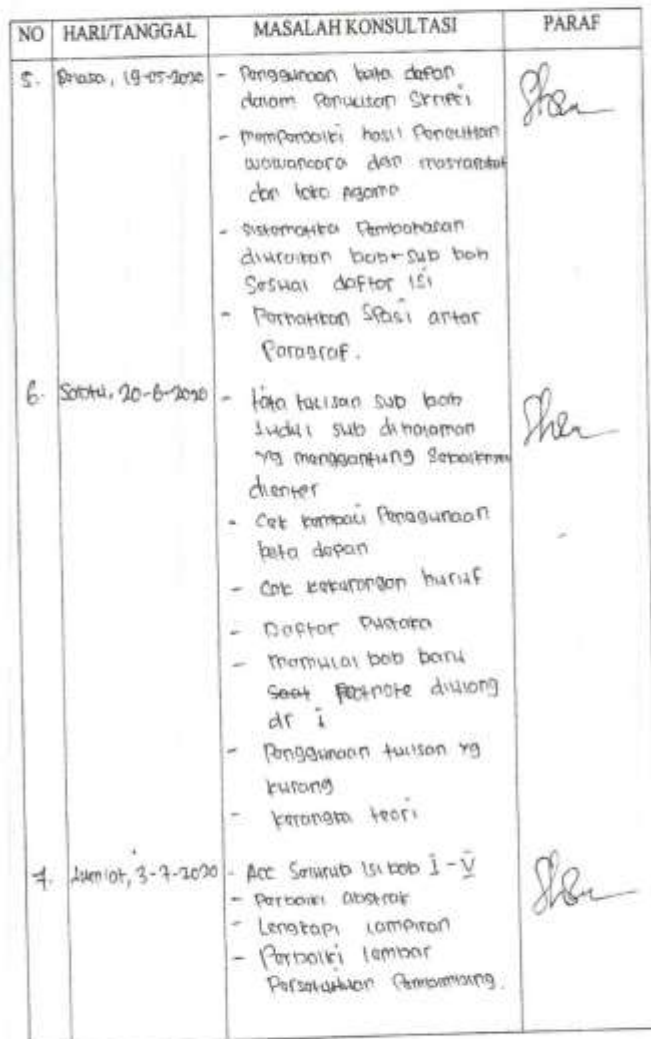 NO HARI/TANGGAL MASALAH KONSULTASI PARAF
5. Selasa, 19-05-2020 - Penggunaan kata depan
dalam Penulisan Skripsi
- memperbaiki hasil Penelitian
wawancara dan masyarakat
dan toko Agama
- Sistematika Pembahasan
diuraikan bab + sub bab
Sesuai daftar isi
- Perhatikan Spasi antar
Paragraf.
6. Sabtu, 20-6-2020 - tata tulisan sub bab
Judul sub dihalaman
yg menggantung Sebaiknya
dienter
- Cek kembali Penggunaan
kata depan
- Cek kekurangan huruf
- Daftar Pustaka
- Memulai bab baru
Saat footnote diulang
dr 1
- Penggunaan tulisan yg
kurang
- kerangka teori
7. Jum'at, 3-7-2020 - Acc Seluruh Isi bab I - V
- Perbaiki abstrak
- Lengkapi lampiran
- Perbaiki lembar
Persetujuan Pembimbing.